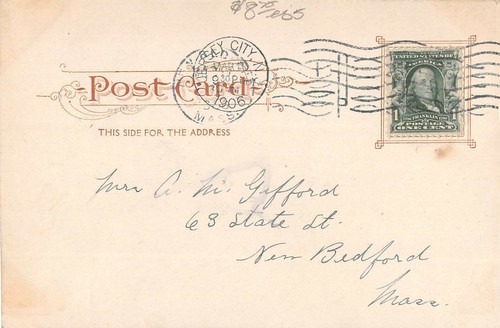 Post Card
THIS SIDE FOR THE ADDRESS
CITY
MAR
930P
1906
MASS.
UNITED STATES OF AMERICA
FRANKLIN
1 1
POSTAGE
ONE CENT
Mrs A. M. Gifford
63 State St.
New Bedford
Mass.